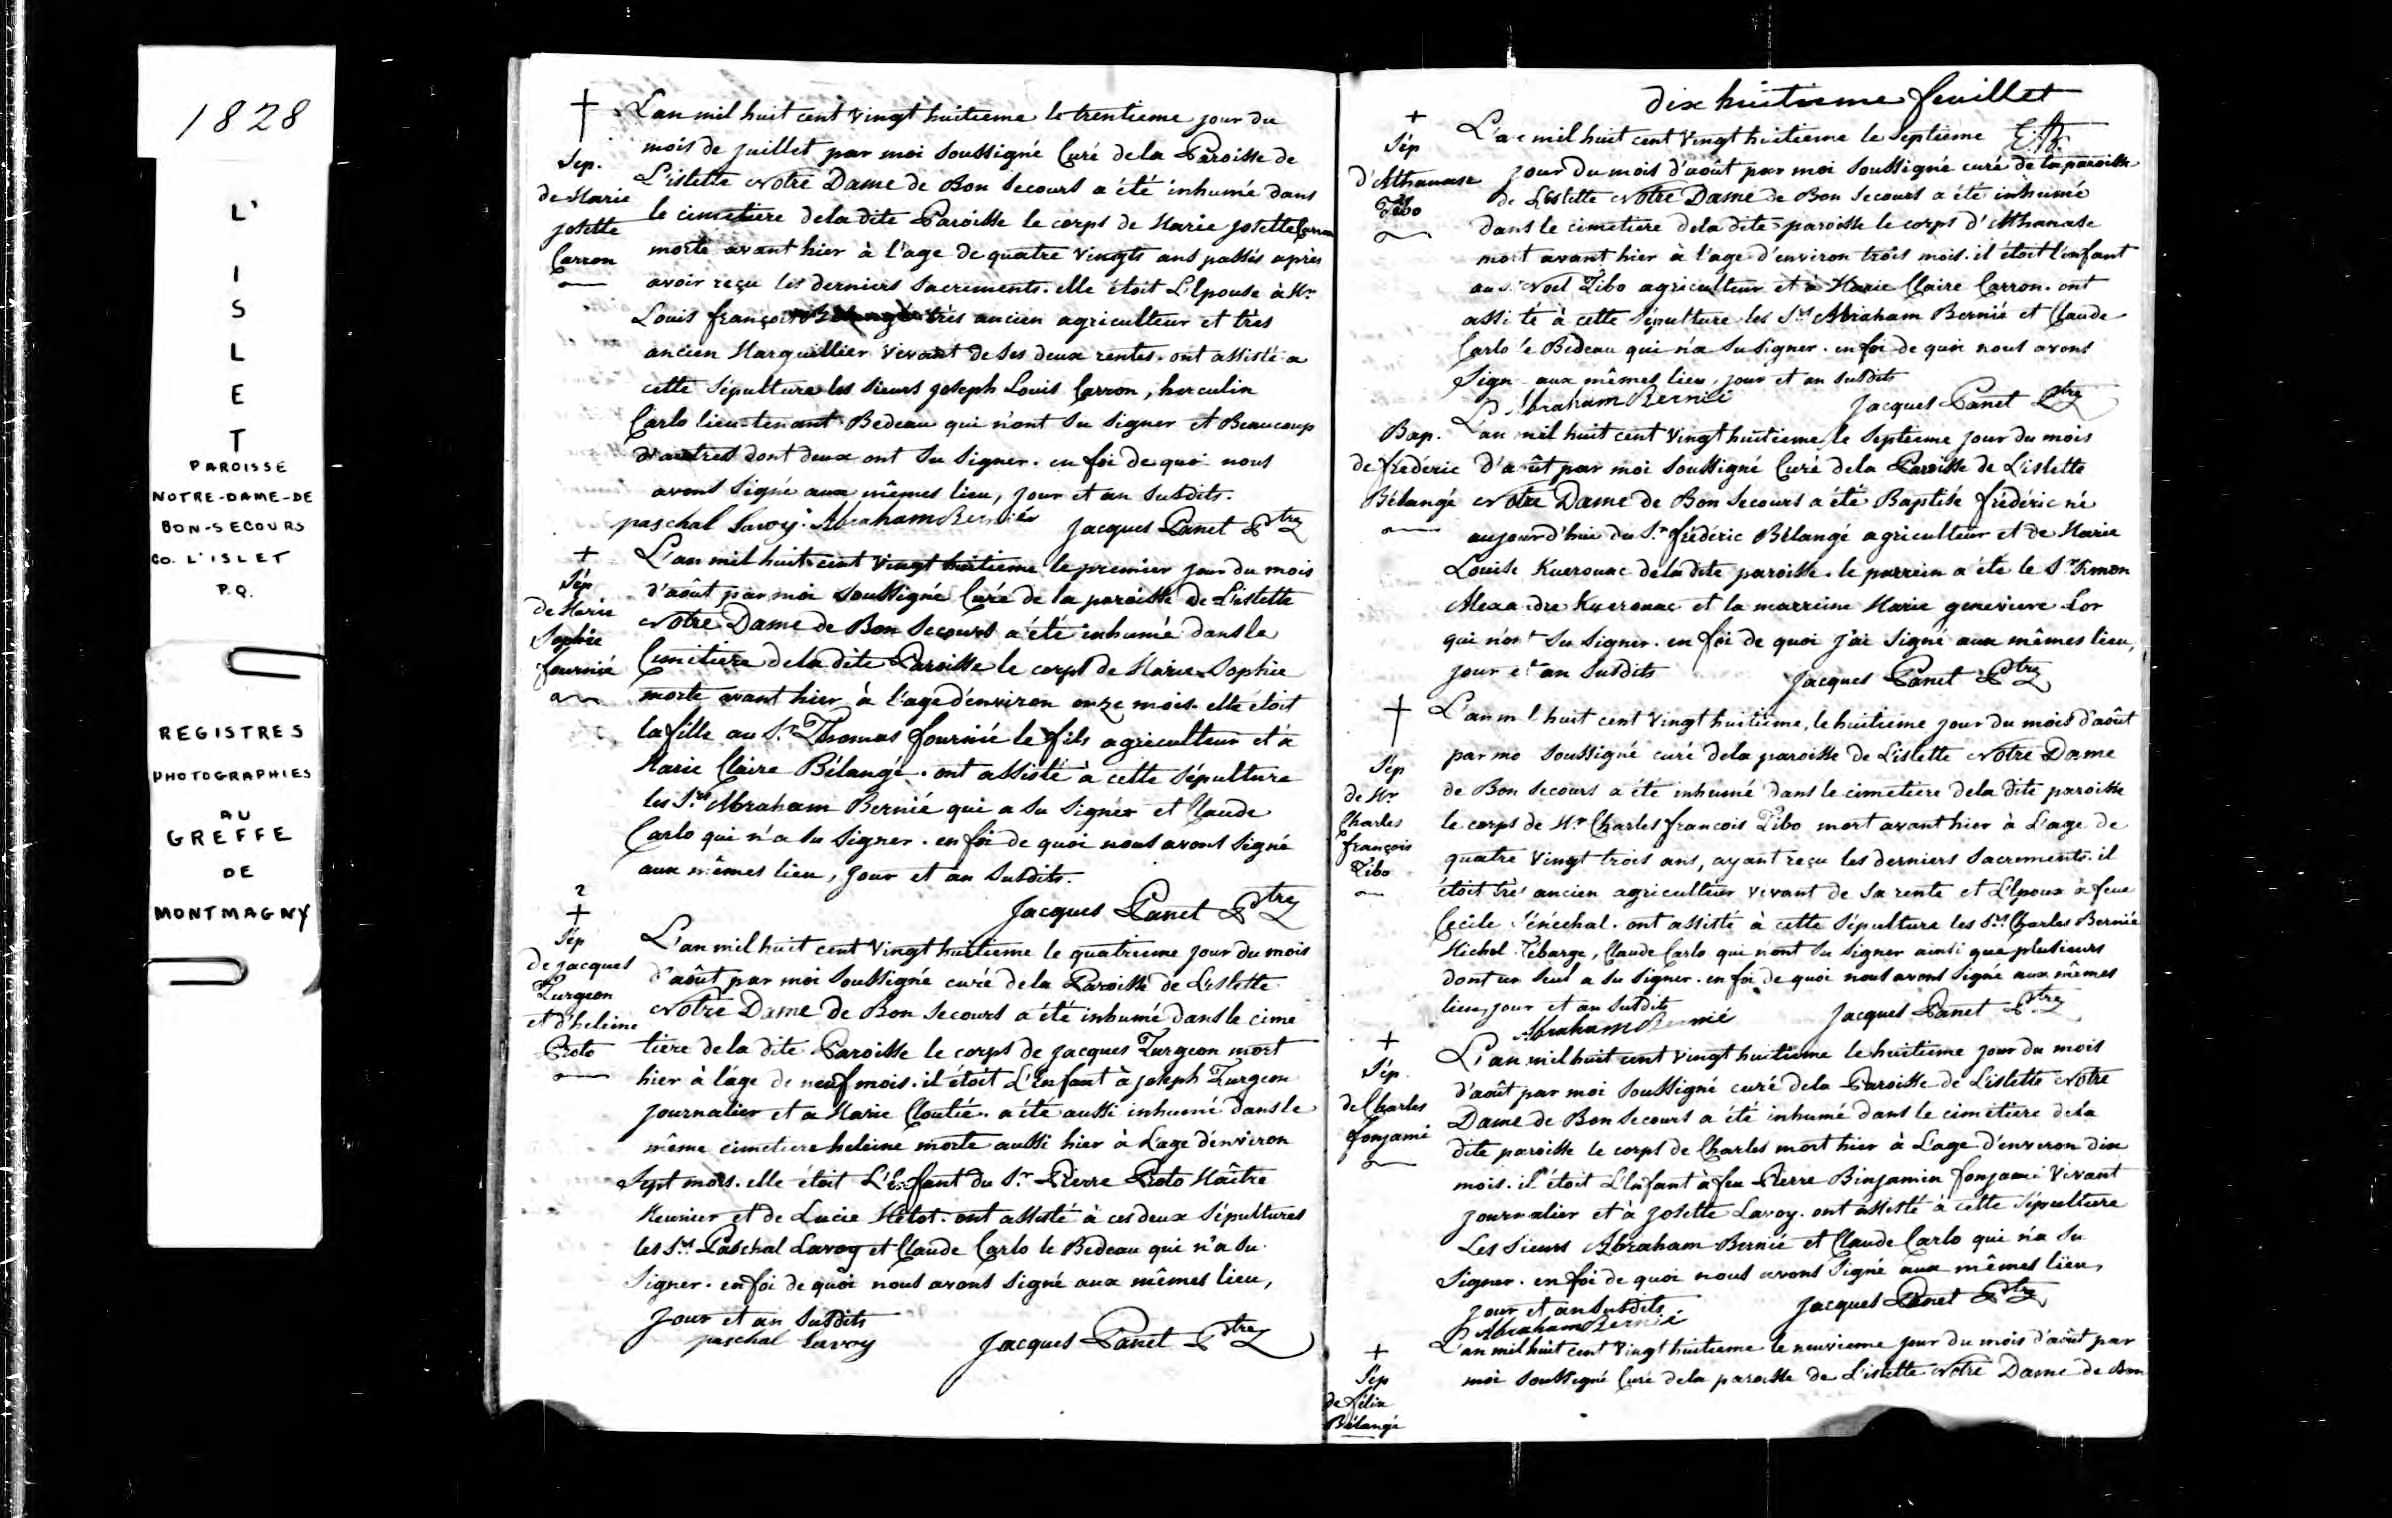 1828
L'
I
S
L
E
T
PAROISSE
NOTRE-DAME-DE
BON-SECOURS
CO. L'ISLET
P.Q.
REGISTRES
PHOTOGRAPHIES
AU
GREFFE
DE
MONTMAGNY
Sep.
de Marie
Josette
Carron
L'an mil huit cent vingt huitieme le trentieme jour du
mois de juillet par moi soussigné Curé de la Paroisse de
L'islette Notre Dame de Bon Secours a été inhumé dans
le cimetiere de la dite Paroisse le corps de Marie Josette Carron
morte avant hier à l'age de quatre vingts ans passés après
avoir reçu les derniers Sacrements. elle étoit L'Epouse à Mr
Louis françois Bélangé très ancien agriculteur et très
ancien Marguillier vivant de ses deux rentes. ont assisté a
cette Sépulture les Sieurs Joseph Louis Carron, herculin
Carlo lieu-tenant Bedeau qui n'ont su signer et Beaucoup
d'autres dont deux ont su signer. en foi de quoi nous
avons signé aux mêmes lieu, jour et an susdits.
paschal Lavoy. Abraham Bernié Jacques Panet Ptre
Sép
de Marie
Sophie
fournié
L'an mil huit cent vingt huitieme le premier jour du mois
d'août par moi soussigné Curé de la paroisse de L'islette
Notre Dame de Bon Secours a été inhumé dans le
Cimetiere de la dite Paroisse le corps de Marie Sophie
morte avant hier à l'age d'environ onze mois. elle étoit
la fille au Sr Thomas fournié le fils agriculteur et à
Marie Claire Bélangé. ont assisté à cette Sépulture
les Srs Abraham Bernié qui a su signer et Claude
Carlo qui n'a su signer. en foi de quoi nous avons signé
aux mêmes lieu, jour et an susdits.
Jacques Panet Ptre
2
Sép
de jacques
Turgeon
et d'heleine
Proto
L'an mil huit cent vingt huitieme le quatrieme jour du mois
d'août par moi soussigné curé de la Paroisse de L'islette
Notre Dame de Bon Secours a été inhumé dans le cime
tiere de la dite Paroisse le corps de jacques Turgeon mort
hier à l'âge de neuf mois. il étoit L'Enfant à joseph Turgeon
journalier et a Marie Cloutié. a été aussi inhumé dans le
même cimetiere heleine morte aussi hier à L'age d'environ
Sept mois. elle étoit L'Enfant du Sr Pierre Proto Maître
Meunier et de Lucie Hétot. ont assisté à ces deux Sépultures
les Srs Paschal Lavoy et Claude Carlo le Bedeau qui n'a su
signer. en foi de quoi nous avons signé aux mêmes lieu,
Jour et an susdits
paschal Lavoy Jacques Panet Ptre
dix huitieme feuillet
Sép
d'Athanase
Tibo
L'an mil huit cent vingt huitieme le Septieme
jour du mois d'août par moi soussigné curé de la paroisse
de L'islette Notre Dame de Bon Secours a été inhumé
dans le cimetiere de la dite paroisse le corps d'Athanase
mort avant hier à l'age d'environ trois mois. il étoit l'enfant
au Sr Noel Tibo agriculteur et à Marie Claire Carron. ont
assisté à cette Sépulture les Srs Abraham Bernié et Claude
Carlo le Bedeau qui n'a su signer. en foi de quoi nous avons
Signé aux mêmes lieu, jour et an susdits
Abraham Bernié Jacques Panet Ptre
Bap.
de frédéric
Bélangé
L'an mil huit cent vingt huitieme le Septieme jour du mois
d'août par moi soussigné Curé de la Paroisse de L'islette
Notre Dame de Bon Secours a été Baptisé frédéric né
aujourd'hui du Sr frédéric Bélangé agriculteur et de Marie
Louise Kuerouac de la dite paroisse. le parrein a été le Sr Simon
Alexandre Kuerouac et la marreine Marie genevieve Lor
qui n'ont su signer. en foi de quoi j'ai signé aux mêmes lieu,
jour et an susdits Jacques Panet Ptre
Sép
de Mr
Charles
françois
Tibo
L'an mil huit cent vingt huitieme, le huitieme jour du mois d'août
par moi soussigné curé de la paroisse de L'islette Notre Dame
de Bon Secours a été inhumé dans le cimetiere de la dite paroisse
le corps de Mr Charles francois Tibo mort avant hier à L'age de
quatre vingt trois ans, ayant reçu les derniers Sacrements. il
étoit très ancien agriculteur vivant de sa rente et L'Epoux à feue
Cécile Sénéchal. ont assisté à cette Sépulture les Srs Charles Bernié
Michel Tébarge, Claude Carlo qui n'ont su signer ainsi que plusieurs
dont un seul a su signer. en foi de quoi nous avons signé aux mêmes
lieu, jour et an susdits
Abraham Bernié Jacques Panet Ptre
Sép.
de Charles
fonjami
L'an mil huit cent vingt huitieme le huitieme jour du mois
d'août par moi soussigné curé de la Paroisse de L'islette Notre
Dame de Bon Secours a été inhumé dans le cimetiere de la
dite paroisse le corps de Charles mort hier à L'age d'environ dix
mois. il étoit L'Enfant à feu Pierre Binjamin fonjami vivant
journalier et à Josette Lavoy. ont assisté à cette Sépulture
Les Sieurs Abraham Bernié et Claude Carlo qui n'a su
signer. en foi de quoi nous avons signé aux mêmes lieu,
jour et an susdits Jacques Panet Ptre
Abraham Bernié
Sép
de Félix
Bélangé
L'an mil huit cent vingt huitieme le neuvieme jour du mois d'août par
moi soussigné Curé de la paroisse de L'islette Notre Dame de Bon